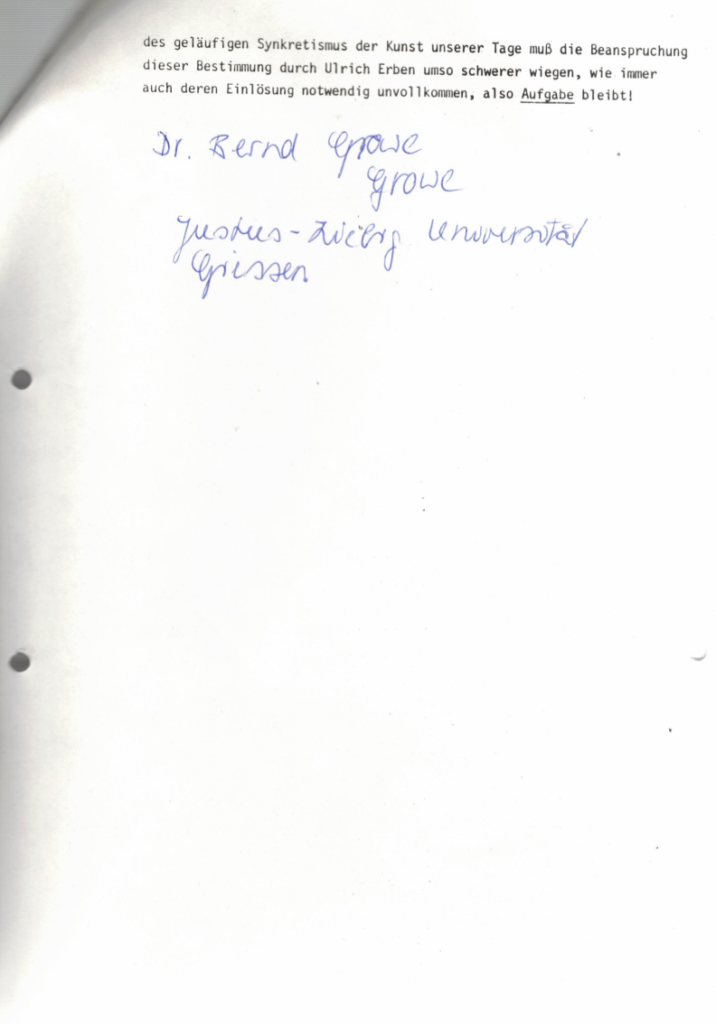 des geläufigen Synkretismus der Kunst unserer Tage muß die Beanspruchung
dieser Bestimmung durch Ulrich Erben umso schwerer wiegen, wie immer
auch deren Einlösung notwendig unvollkommen, also Aufgabe bleibt!
Dr. Bernd Growe
Growe
Justus-Liebig Universität
Giessen